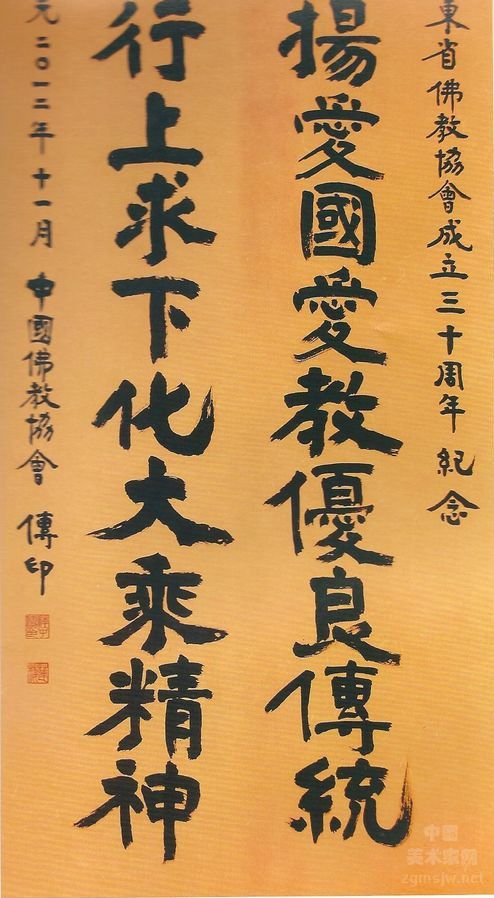 東省佛教協會成立三十周年紀念
揚愛國愛教優良傳統
行上求下化大乘精神
元二〇一二年十一月 中國佛教協會 傳印
中國美术家网
zgmsjw.net